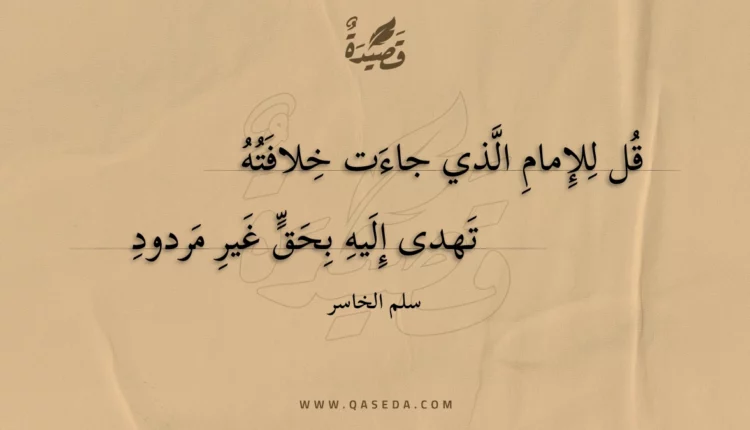 قَصِيْدَةٌ
قُل لِلإِمامِ الَّذي جاءَت خِلافَتُهُ
تَهدى إِلَيهِ بِحَقٍّ غَيرِ مَردودِ
سلم الخاسر
WWW.QASEDA.COM